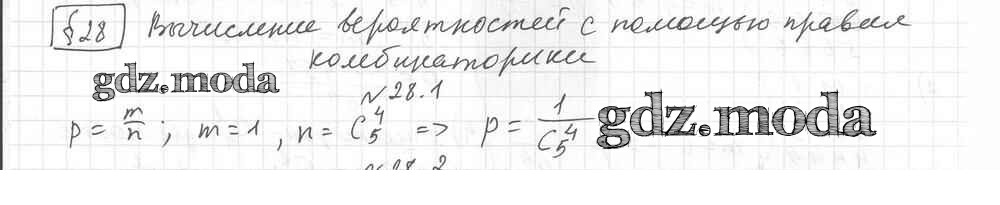 §28 Вычисление вероятностей с помощью правил
комбинаторики
gdz.moda
№28.1
p = m/n; m = 1, n = C₅⁴ => p = 1/C₅⁴
gdz.moda
№28.2